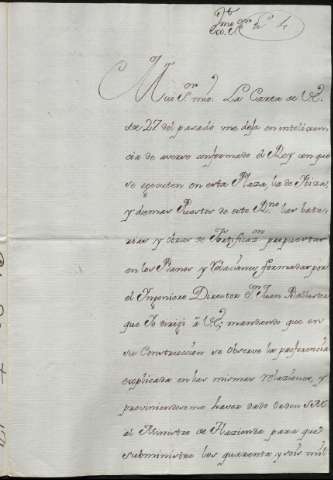 Mui S.ºʳ mio. La Carta de V.E.
de 27 del pasado me deja en inteligen-
cia de averse conformado el Rey en que
se egecuten en esta Plaza, la de Ibiza,
y demas Puertos de este R.ⁿᵒ las bate-
rias y obras de Fortificaz.ᵒⁿ propuestas
en los Planos y Relaciones formadas por
el Ingeniero Director D.ⁿ Juan Ballester
que Yo traigi à V.E. mandando que en
su Construccion se observe la preferencia
explicada en las mismas relaziones, y
previniendome haver dado orden S.M.
al Ministro de Hazienda para que
subministre los quarenta y seis mil